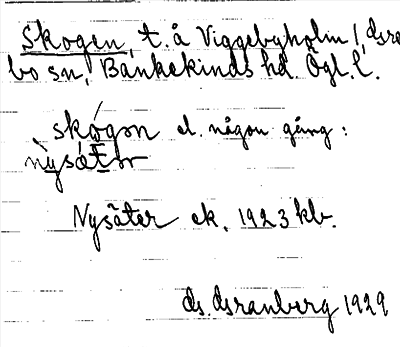 Skogen, t. å Viggebyholm i,
bo sn, Bankekinds hd Ögl. l.
skógən el. någon gång:
nysätər
Nysäter ek. 1923 kb.
1929